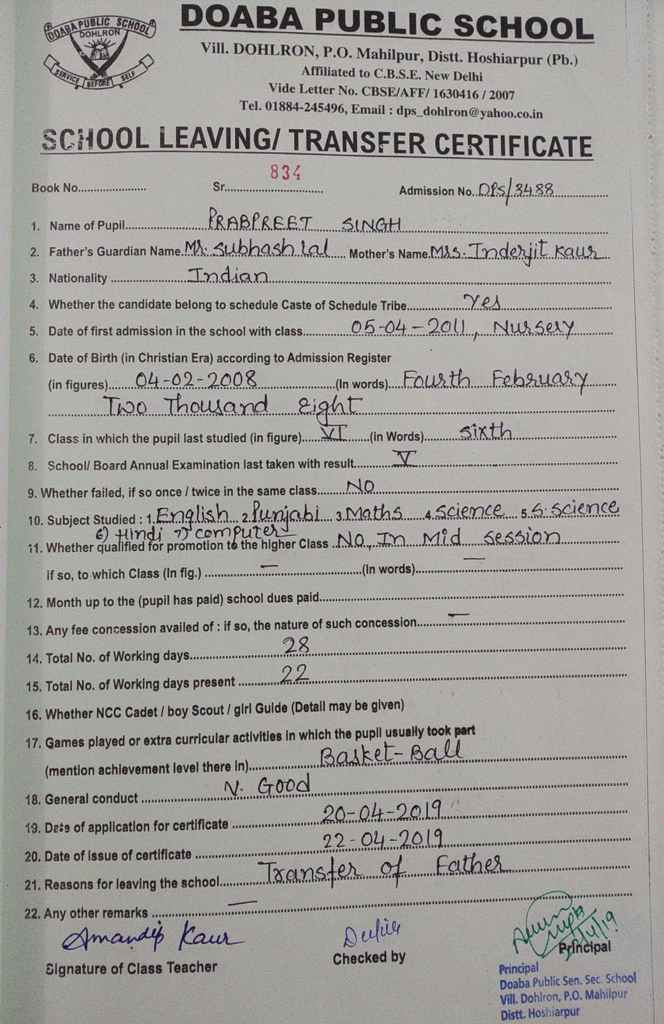 DOABA PUBLIC SCHOOL
DOHLRON
SERVICE BEFORE SELF
DOABA PUBLIC SCHOOL
Vill. DOHLRON, P.O. Mahilpur, Distt. Hoshiarpur (Pb.)
Affiliated to C.B.S.E. New Delhi
Vide Letter No. CBSE/AFF/ 1630416 / 2007
Tel. 01884-245496, Email : dps_dohlron@yahoo.co.in
SCHOOL LEAVING/ TRANSFER CERTIFICATE
Book No.................... Sr. 834 Admission No. DPS/3488
1. Name of Pupil PRABPREET SINGH
2. Father's Guardian Name Mr. Subhash Lal Mother's Name Mrs. Inderjit Kaur
3. Nationality Indian
4. Whether the candidate belong to schedule Caste of Schedule Tribe Yes
5. Date of first admission in the school with class 05-04-2011, Nursery
6. Date of Birth (in Christian Era) according to Admission Register
(in figures) 04-02-2008 (In words) Fourth February
Two Thousand Eight
7. Class in which the pupil last studied (in figure) VI (in Words) Sixth
8. School/ Board Annual Examination last taken with result V
9. Whether failed, if so once / twice in the same class NO
10. Subject Studied : 1. English 2. Punjabi 3. Maths 4. Science 5. S. Science
6) Hindi 7) Computer
11. Whether qualified for promotion to the higher Class No, In Mid Session
if so, to which Class (In fig.) — (In words) —
12. Month up to the (pupil has paid) school dues paid
13. Any fee concession availed of : if so, the nature of such concession —
14. Total No. of Working days 28
15. Total No. of Working days present 22
16. Whether NCC Cadet / boy Scout / girl Guide (Detail may be given)
17. Games played or extra curricular activities in which the pupil usually took part
(mention achievement level there in) Basket-Ball
18. General conduct V. Good
19. Date of application for certificate 20-04-2019
20. Date of issue of certificate 22-04-2019
21. Reasons for leaving the school Transfer of Father
22. Any other remarks —
Amandip Kaur
Signature of Class Teacher
Checked by
Principal
Principal
Doaba Public Sen. Sec. School
Vill. Dohlron, P.O. Mahilpur
Distt. Hoshiarpur